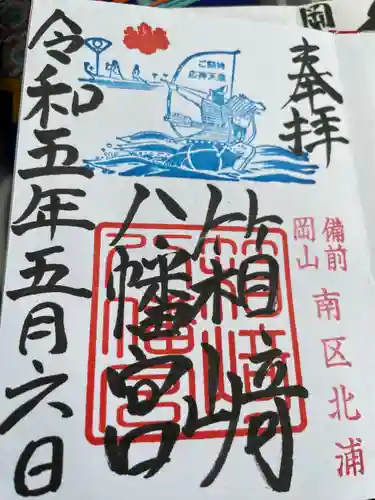 奉拝
備前
岡山
南区北浦
箱崎
八幡宮
令和五年五月六日
ご祭神
応神天皇
岡